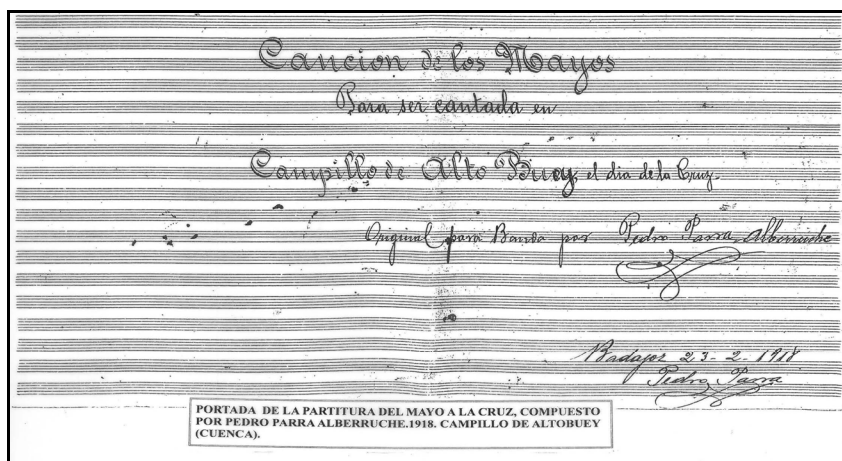 Cancion de los Mayos
Para ser cantada en
Campillo de Alto Buey, el dia de la Cruz.
Original para Banda por Pedro Parra Alberruche
Badajoz 23-2-1918
Pedro Parra
PORTADA DE LA PARTITURA DEL MAYO A LA CRUZ, COMPUESTO
POR PEDRO PARRA ALBERRUCHE.1918. CAMPILLO DE ALTOBUEY
(CUENCA).